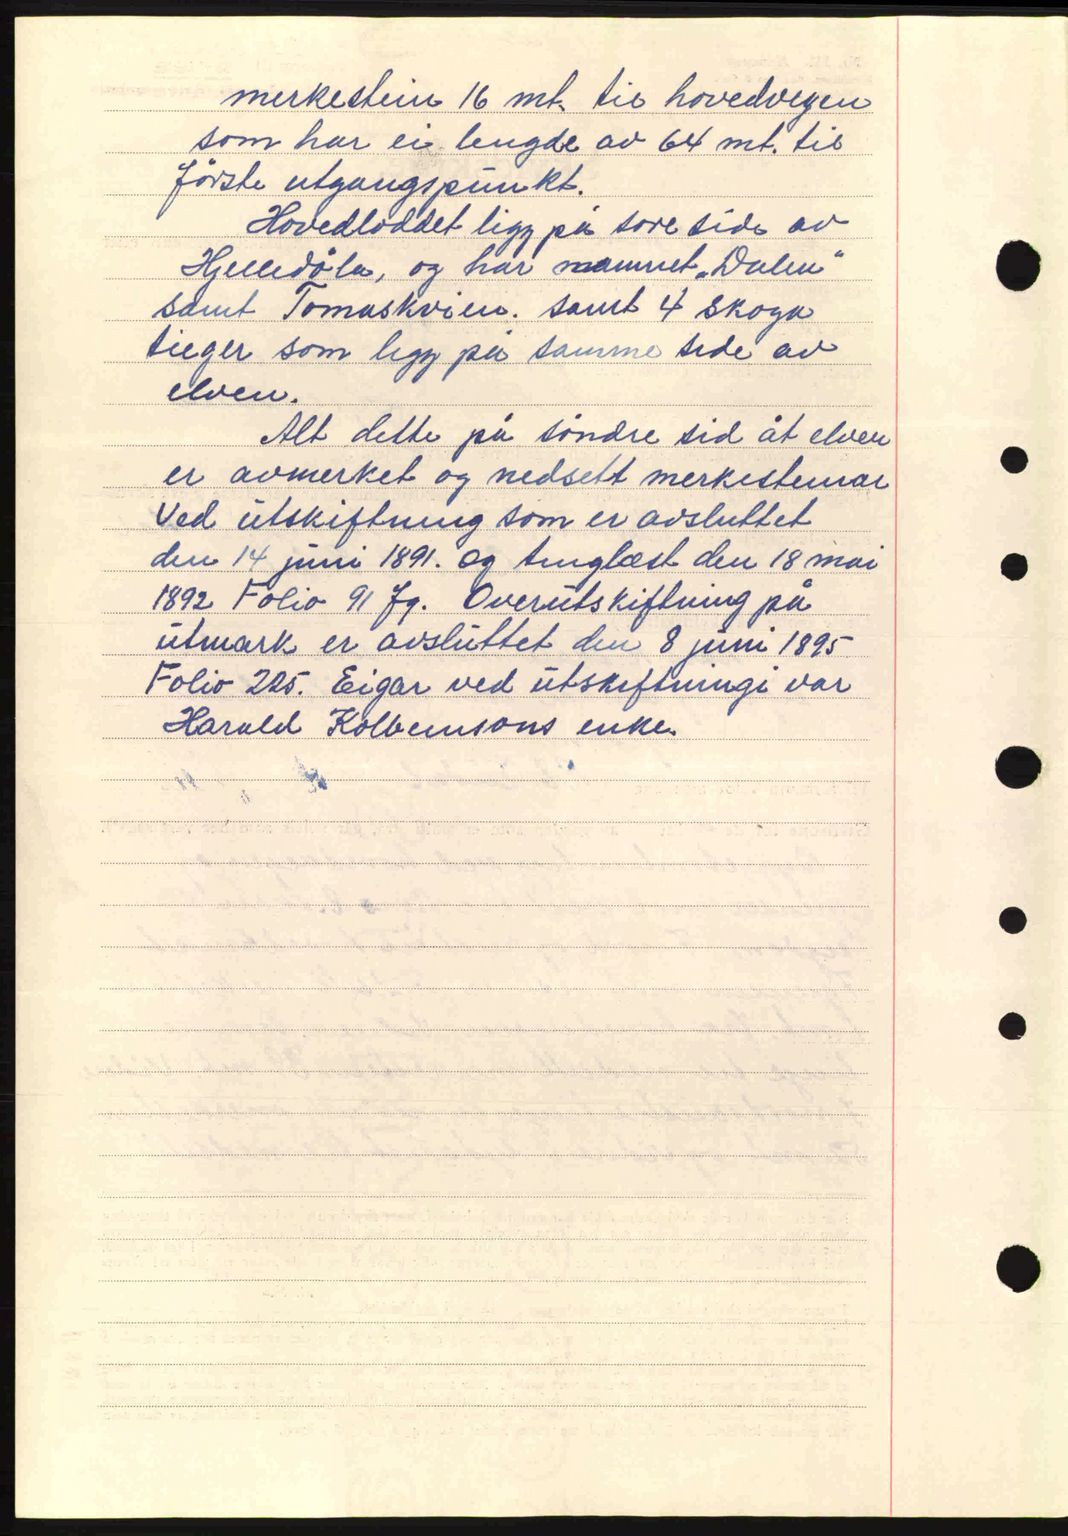 merkestein 16 mt. til hovedvegen
som har ei lengde av 64 mt. til
förste utgangspunkt.
Hovedloddet ligg på sore side av
Hjelledöla, og har namnet „Dalen“
samt Tomaskvien. samt 4 skoga
tieger som ligg på samme side av
elven.
Alt dette på söndre sid åt elven
er avmerket og nedsett merkesteinar
Ved utskiftning som er avsluttet
den 14 juni 1891. og tinglæst den 18 mai
1892 Folio 91 fg. Overutskiftning på
utmark er avsluttet den 8 juni 1895
Folio 225. Eigar ved utskiftningi var
Harald Kolbeinsons enke.